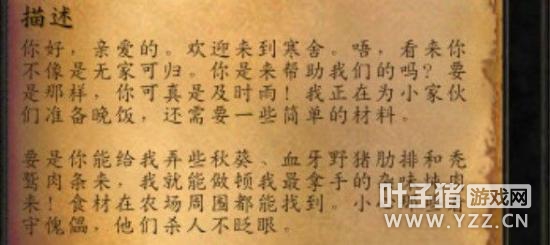 描述
你好，亲爱的。欢迎来到寒舍。唔，看来你
不像是无家可归。你是来帮助我们的吗？要
是那样，你可真是及时雨！我正在为小家伙
们准备晚饭，还需要一些简单的材料。
要是你能给我弄些秋葵、血牙野猪肋排和秃
鹫肉条来，我就能做顿我最拿手的杂味炖肉
来！食材在农场周围都能找到。小心
守傀儡，他们杀人不眨眼。
叶子猪 游戏网
www.YZZ.CN